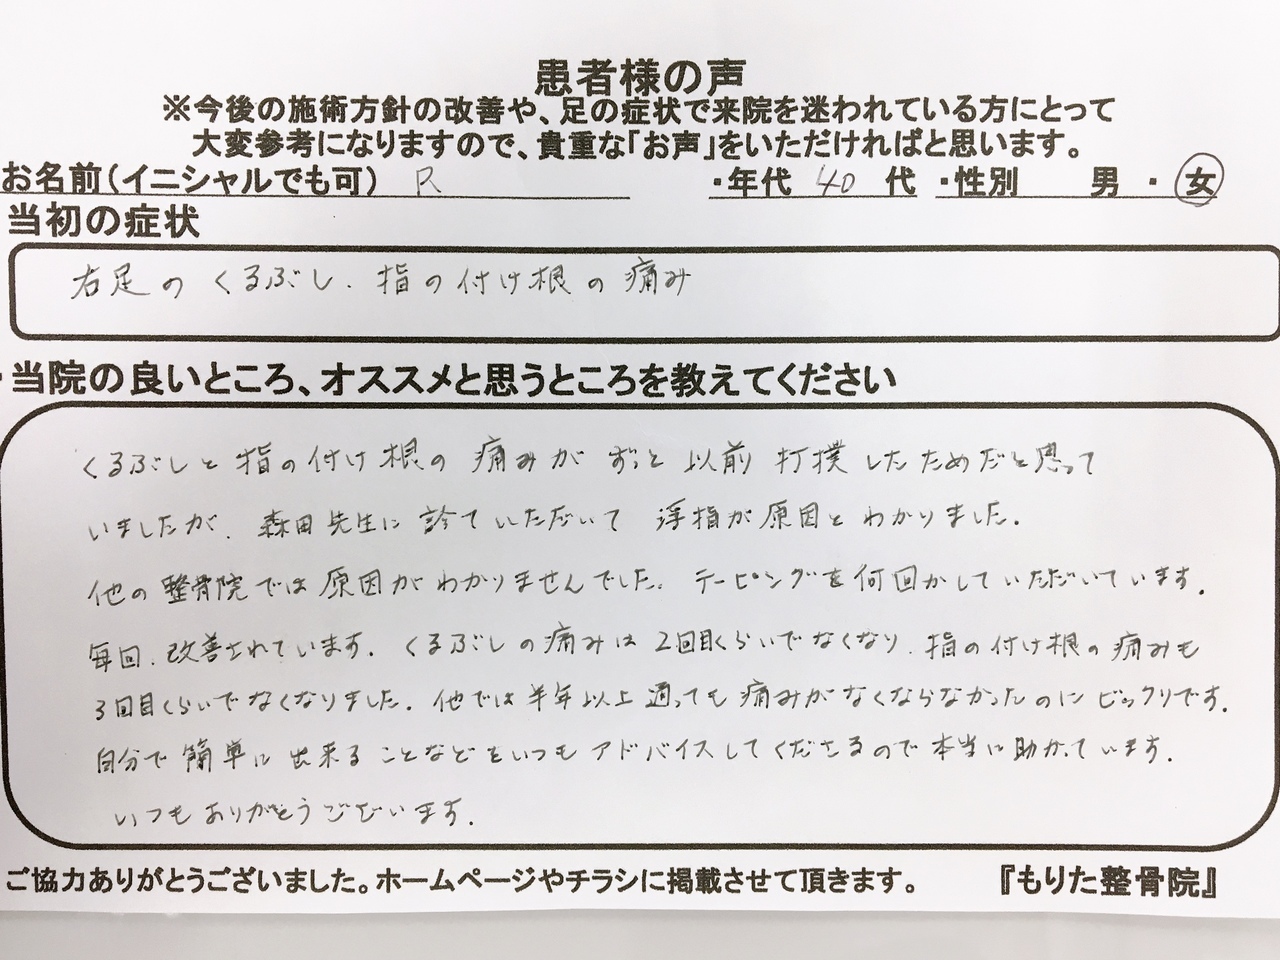 患者様の声
※今後の施術方針の改善や、足の症状で来院を迷われている方にとって
大変参考になりますので、貴重な「お声」をいただければと思います。
お名前(イニシャルでも可) R ・年代 40 代 ・性別 男 ・ 女
当初の症状
右足の くるぶし、指の付け根の痛み
・当院の良いところ、オススメと思うところを教えてください
くるぶしと指の付け根の痛みがずっと以前打撲したためだと思って
いましたが、森田先生に診ていただいて浮指が原因とわかりました。
他の整骨院では原因がわかりませんでした。テーピングを何回かしていただいています。
毎回、改善されています。くるぶしの痛みは2回目くらいでなくなり、指の付け根の痛みも
3回目くらいでなくなりました。他では半年以上通っても痛みがなくならなかったのにビックリです。
自分で簡単に出来ることなどをいつもアドバイスしてくださるので本当に助かっています。
いつもありがとうございます。
ご協力ありがとうございました。ホームページやチラシに掲載させて頂きます。 『もりた整骨院』